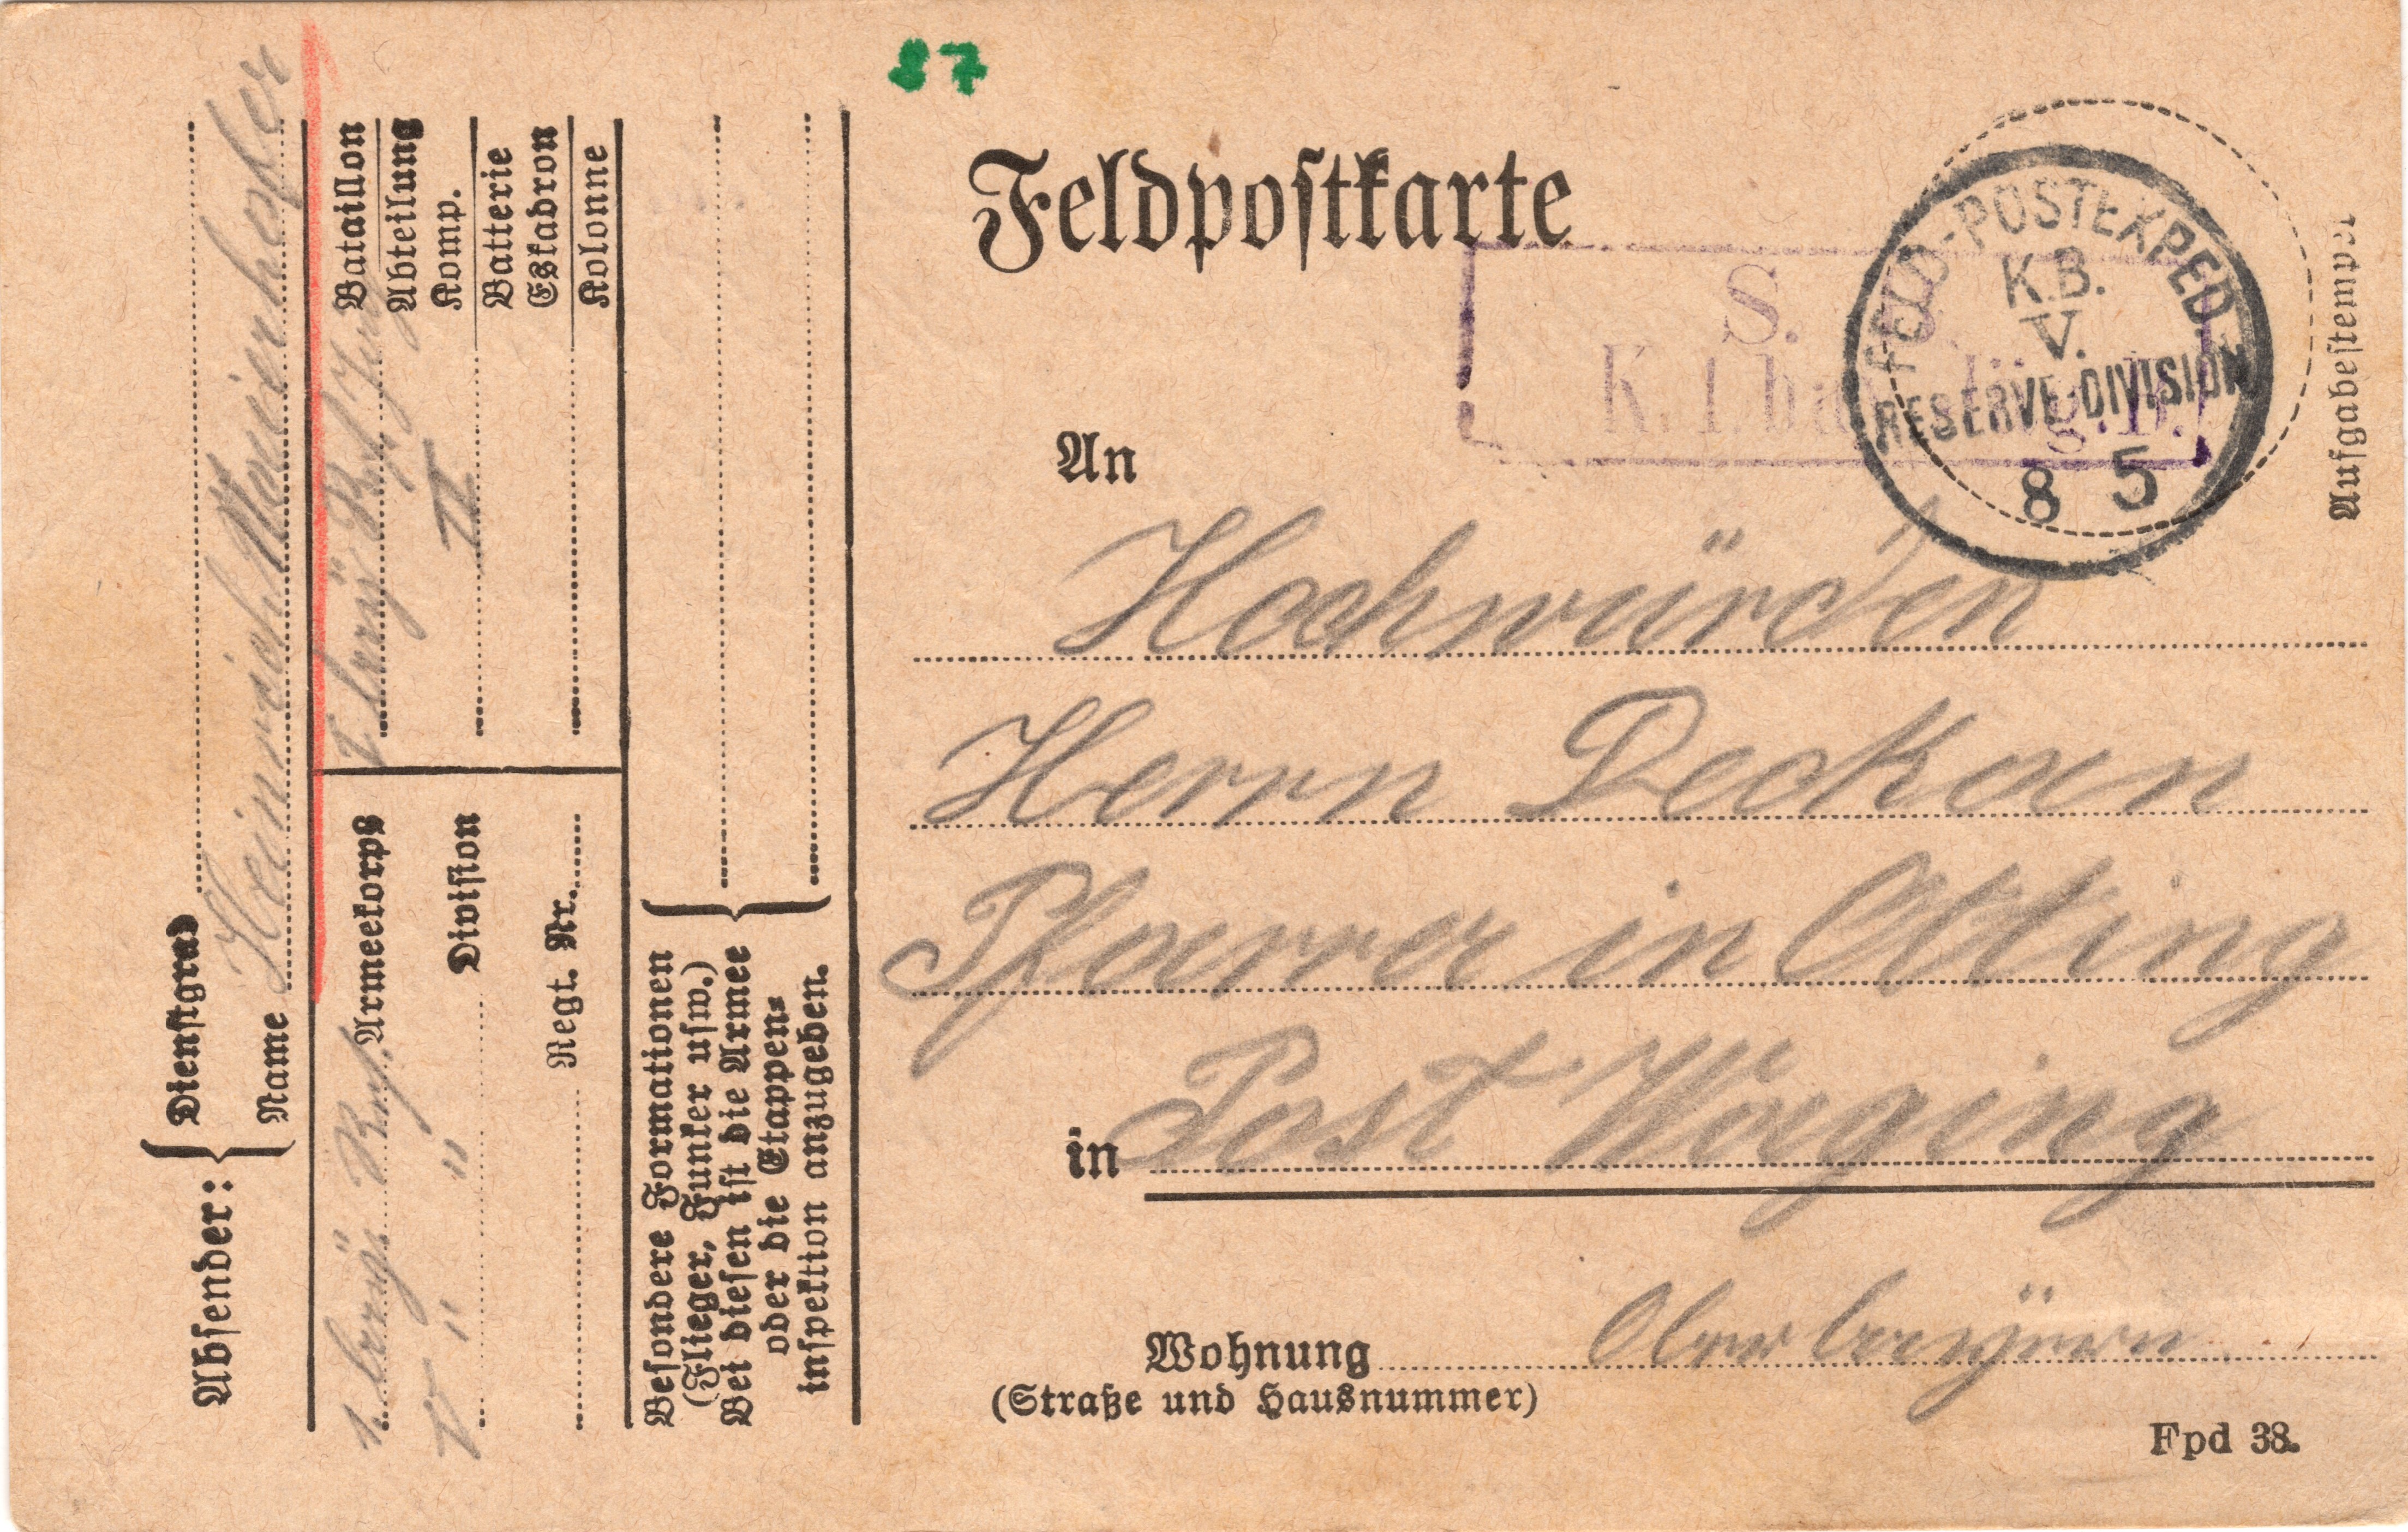 87
Feldpostkarte
S.
K. 1. b
FELD-POSTEXPED.
K.B.
V.
RESERVE-DIVISION
8 5
Aufgabestempel
An
Hochwürden
Herrn Deckan
Pfarrer in Otting
in Post Waging
Wohnung Oberbayern
(Straße und Hausnummer)
Fpd 38.
Absender:
Dienstgrad
Name Heinrich Maierhofer
1. bayr. Res. Armeekorps
V " " Division
Regt. Nr.
Bataillon
Abteilung
Komp. II
Batterie
Eskadron
Kolonne
Besondere Formationen
(Flieger, Funker usw.)
Bei diesen ist die Armee
oder die Etappen-
inspektion anzugeben.